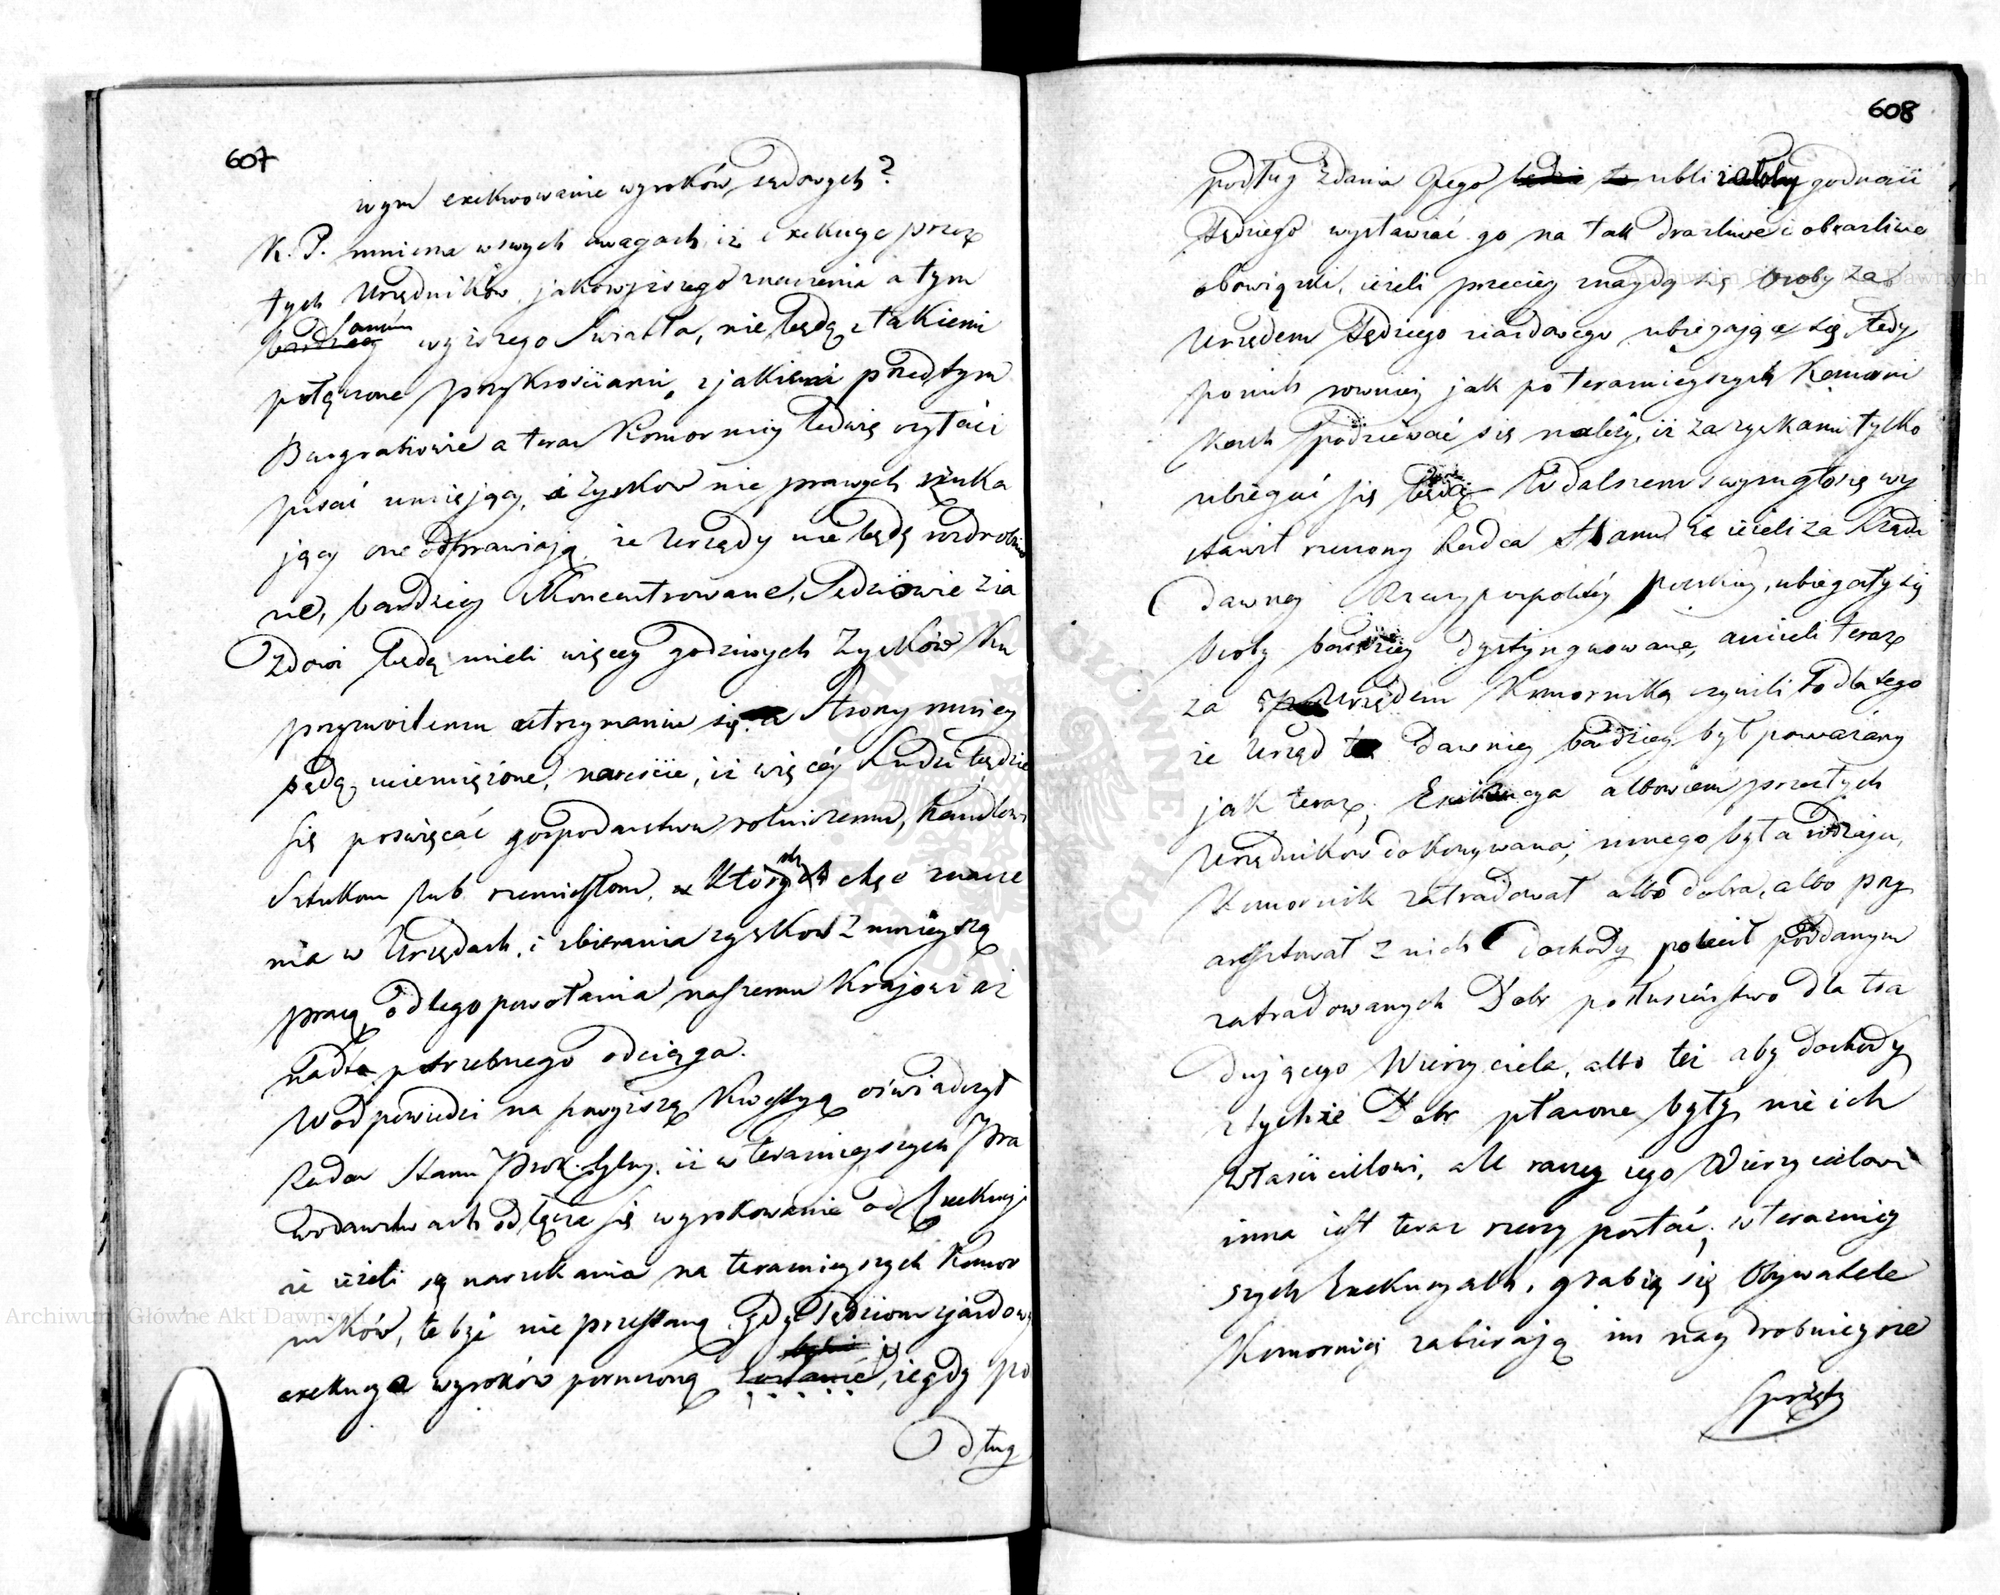 607
wym exekwowanie wyroków sądowych?
K. P. mniema w swych uwagach, iż exekucye przez
tych Urzędników jakowyższego znaczenia a tym
samém wyższego Swiatła, nie będą z takiemi
połączone przykrościami, z jakiemi przedtym
Burgrabiowie a teraz Komornicy ledwie czytać i
pisać umiejący, a Zysków nie prawych szuka
jący one odprawiają, że Urzędy nie będą rozdrobnio
ne, bardziey Koncentrowane, Sędziowie Zia
zdowi będą mieli więcey godziwych Zysków Ku
przyzwoitemu utrzymaniu się, a Strony mniey
będą uciemiężone, nareście, iż więcéy Ludzi będzie
się poświęcać gospodarstwu rolniczemu, handlowi
Sztukom lub rzemiosłom, od których chęć znacze
nia w Urzędach, i zbierania zysków z mnieyszą
pracą, od tego powołania naszemu Krajowi aż
nadto potrzebnego odciąga.
W odpowiedzi na powyższą Kwestyą oświadczył
Radca Stanu Prok. Glny. iż w teraznieyszych Pra
wodawstwach odłącza się wyrokowanie od Exekucyi
że ieżeli są narzekania na teraznieyszych Komor
ników, te być nie przestaną, gdy Sędziom zjazdowym
exekucya wyroków poruczoną zostanie, że gdy po
dług
608
podług Zdania Jego ubliżałoby godności
Sędziego wystawiać go na tak drazliwe i obrazliwe
obowiązki, ieżeli przeciez znaydą się Osoby za
Urzędem Sędziego ziazdowego ubiegające się, tedy
po nich rowniez jak po teraznieyszych Komorni
kach spodziewać się należy, iż za zyskami tylko
ubiegać się będą. W dalszem swym głosię wy
stawił rzeczony Radca Stanu że ieżeli za Rządu
dawney Rzeczypospolitéy Polskiey, ubiegały się
Osoby bardziey dystyngwowane, aniżeli teraz
za Urzędem Komornika czynili to dla tego
że Urząd ten dawniey bardziey był poważany
jak teraz, Exekucya albowiem przez tych
Urzędników dokonywana, innego była rodzaju,
Komornik zatradował albo dobra, albo przy
aresztował z nich dochody polecił poddanym
zatradowanych Dobr posłuszeństwo dla tra
dującego Wierzyciela, albo też aby dochody
z tychże Dobr płacone były, nie ich
Właścicielowi, ale raczey iego Wierzycielowi
inna iest teraz rzeczy postać, w terazniey
szych Exekucyach, grabią się Obywatele
Komornicy zabierają im nay drobnieysze
sprzęty
Archiwum Główne Akt Dawnych
Archiwum Główne Akt Dawnych